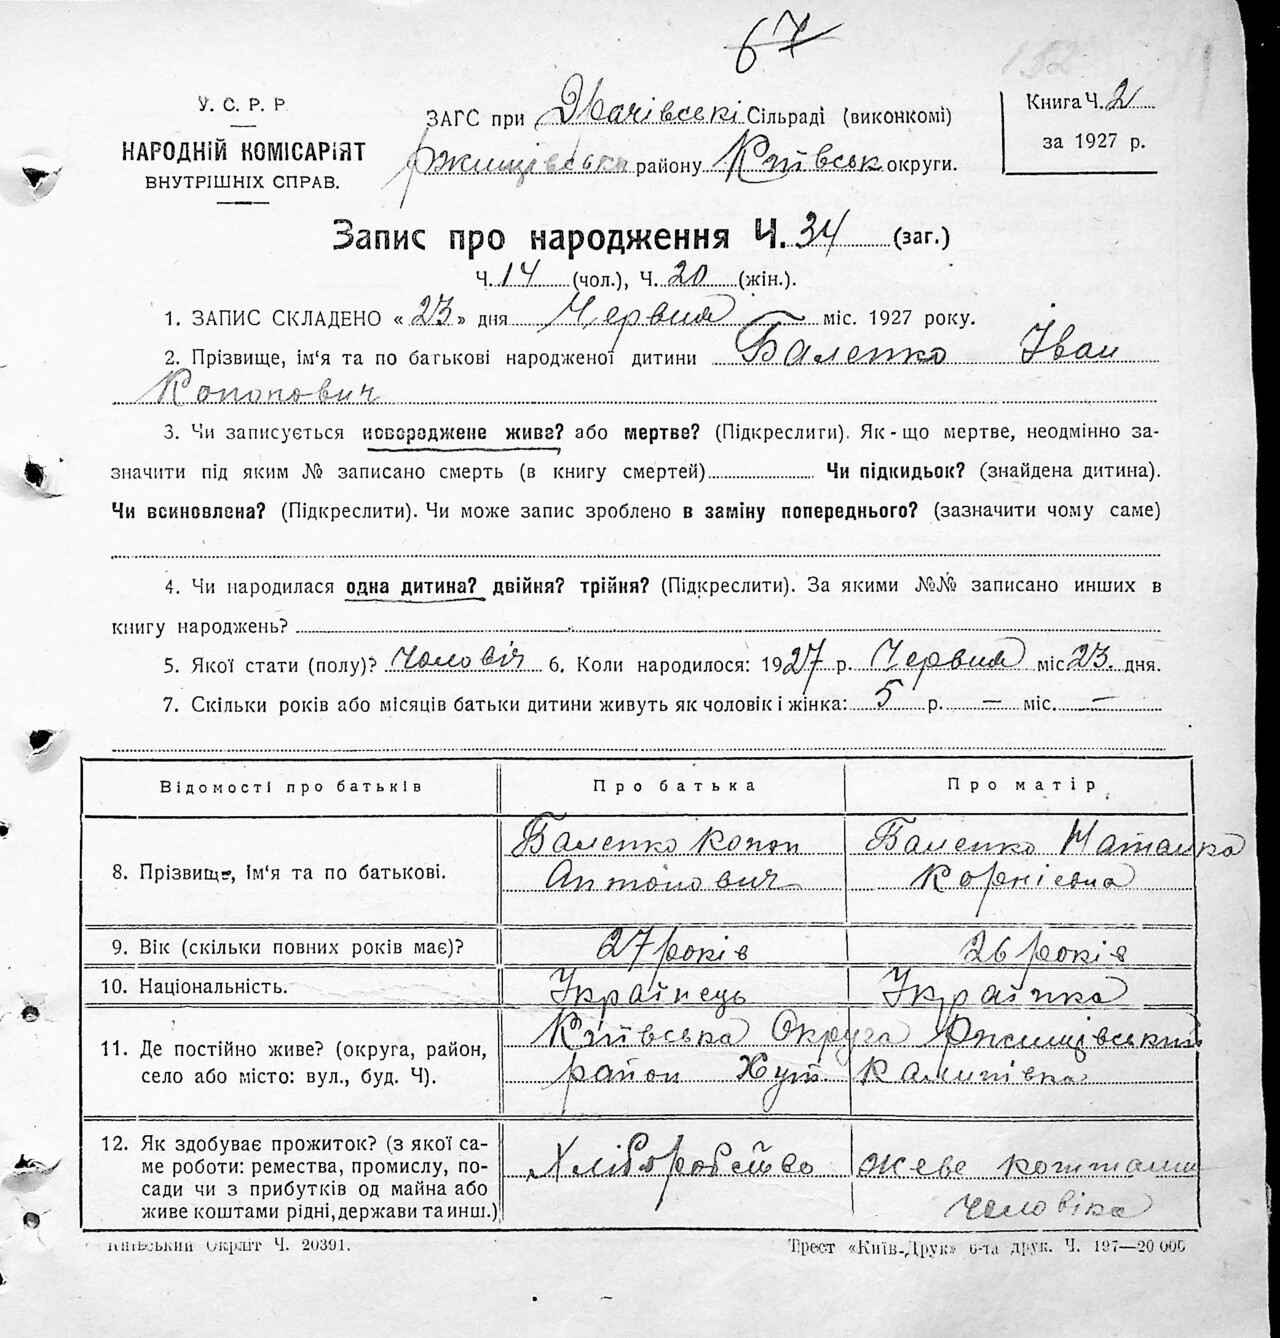 67
152
У. С. Р. Р.
НАРОДНІЙ КОМІСАРІЯТ
ВНУТРІШНІХ СПРАВ.
ЗАГС при Драчівські Сільраді (виконкомі)
Ржищівська району Київськ округи.
Книга Ч. 2
за 1927 р.
Запис про народження Ч. 34 (заг.)
Ч. 14 (чол.), Ч. 20 (жін.).
1. ЗАПИС СКЛАДЕНО « 23 » дня Червня міс. 1927 року.
2. Прізвище, ім'я та по батькові народженої дитини Баленко Іван
Кононович
3. Чи записується новороджене живе? або мертве? (Підкреслити). Як-що мертве, неодмінно за-
значити під яким № записано смерть (в книгу смертей) Чи підкидьок? (знайдена дитина).
Чи всиновлена? (Підкреслити). Чи може запис зроблено в заміну попереднього? (зазначити чому саме)
4. Чи народилася одна дитина? двійня? трійня? (Підкреслити). За якими №№ записано инших в
книгу народжень?
5. Якої стати (полу)? Чоловіч 6. Коли народилося: 1927 р. Червня міс 23. дня.
7. Скільки років або місяців батьки дитини живуть як чоловік і жінка: 5 р. — міс. —
Відомості про батьків Про батька Про матір
8. Прізвище, ім'я та по батькові. Баленко Конон Антонович Баленко Наталка Корніевна
9. Вік (скільки повних років має)? 27 років 26 років
10. Національність. Українець Українка
11. Де постійно живе? (округа, район, Київська Округа Ржищівський
село або місто: вул., буд. Ч). район Хут Калинівка
12. Як здобуває прожиток? (з якої са- Хліборобство живе коштами
ме роботи: ремества, промислу, по- чоловіка
сади чи з прибутків од майна або
живе коштами рідні, держави та инш.)
Київський Окрліт Ч. 20391.
Трест «Київ-Друк» 6-та друк. Ч. 197—20 000